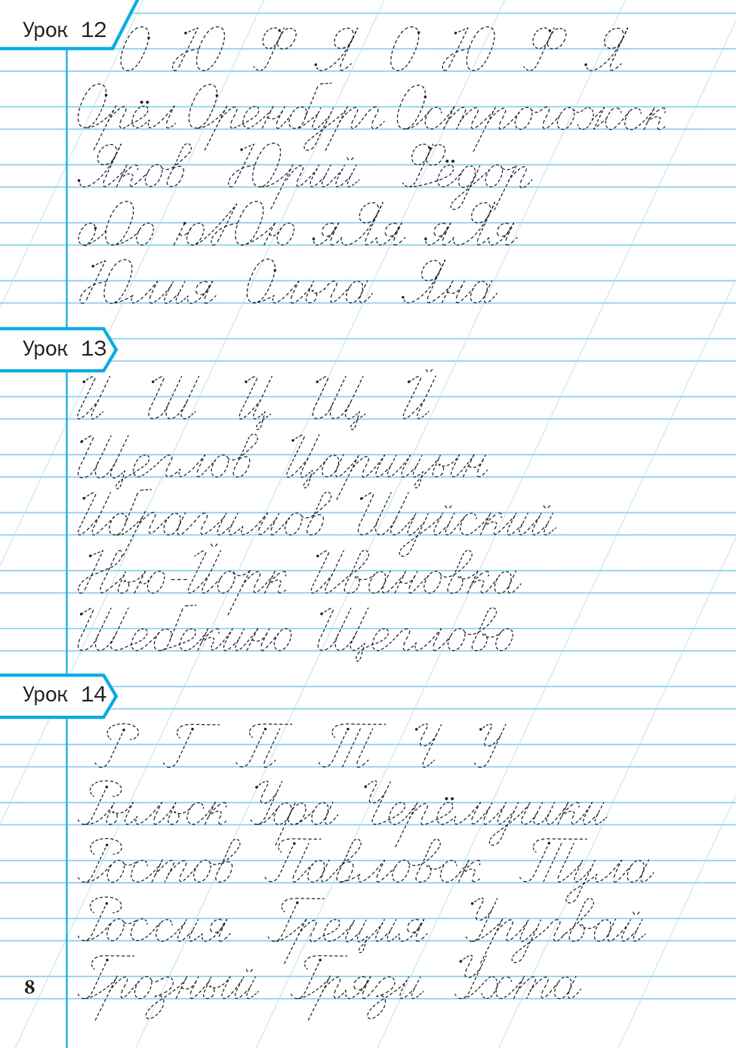 Урок 12
О Ю Ф Я О Ю Ф Я
Орёл Оренбург Острогожск
Яков Юрий Фёдор
оОо юЮю яЯя яЯя
Юлия Ольга Яна
Урок 13
И Ш Ц Щ Й
Щеглов Царицын
Ибрагимов Шуйский
Нью-Йорк Ивановка
Шебекино Щеглово
Урок 14
Р Г П Т Ч У
Рыльск Уфа Черёмушки
Ростов Павловск Тула
Россия Греция Уругвай
Грозный Грязи Ухта
8